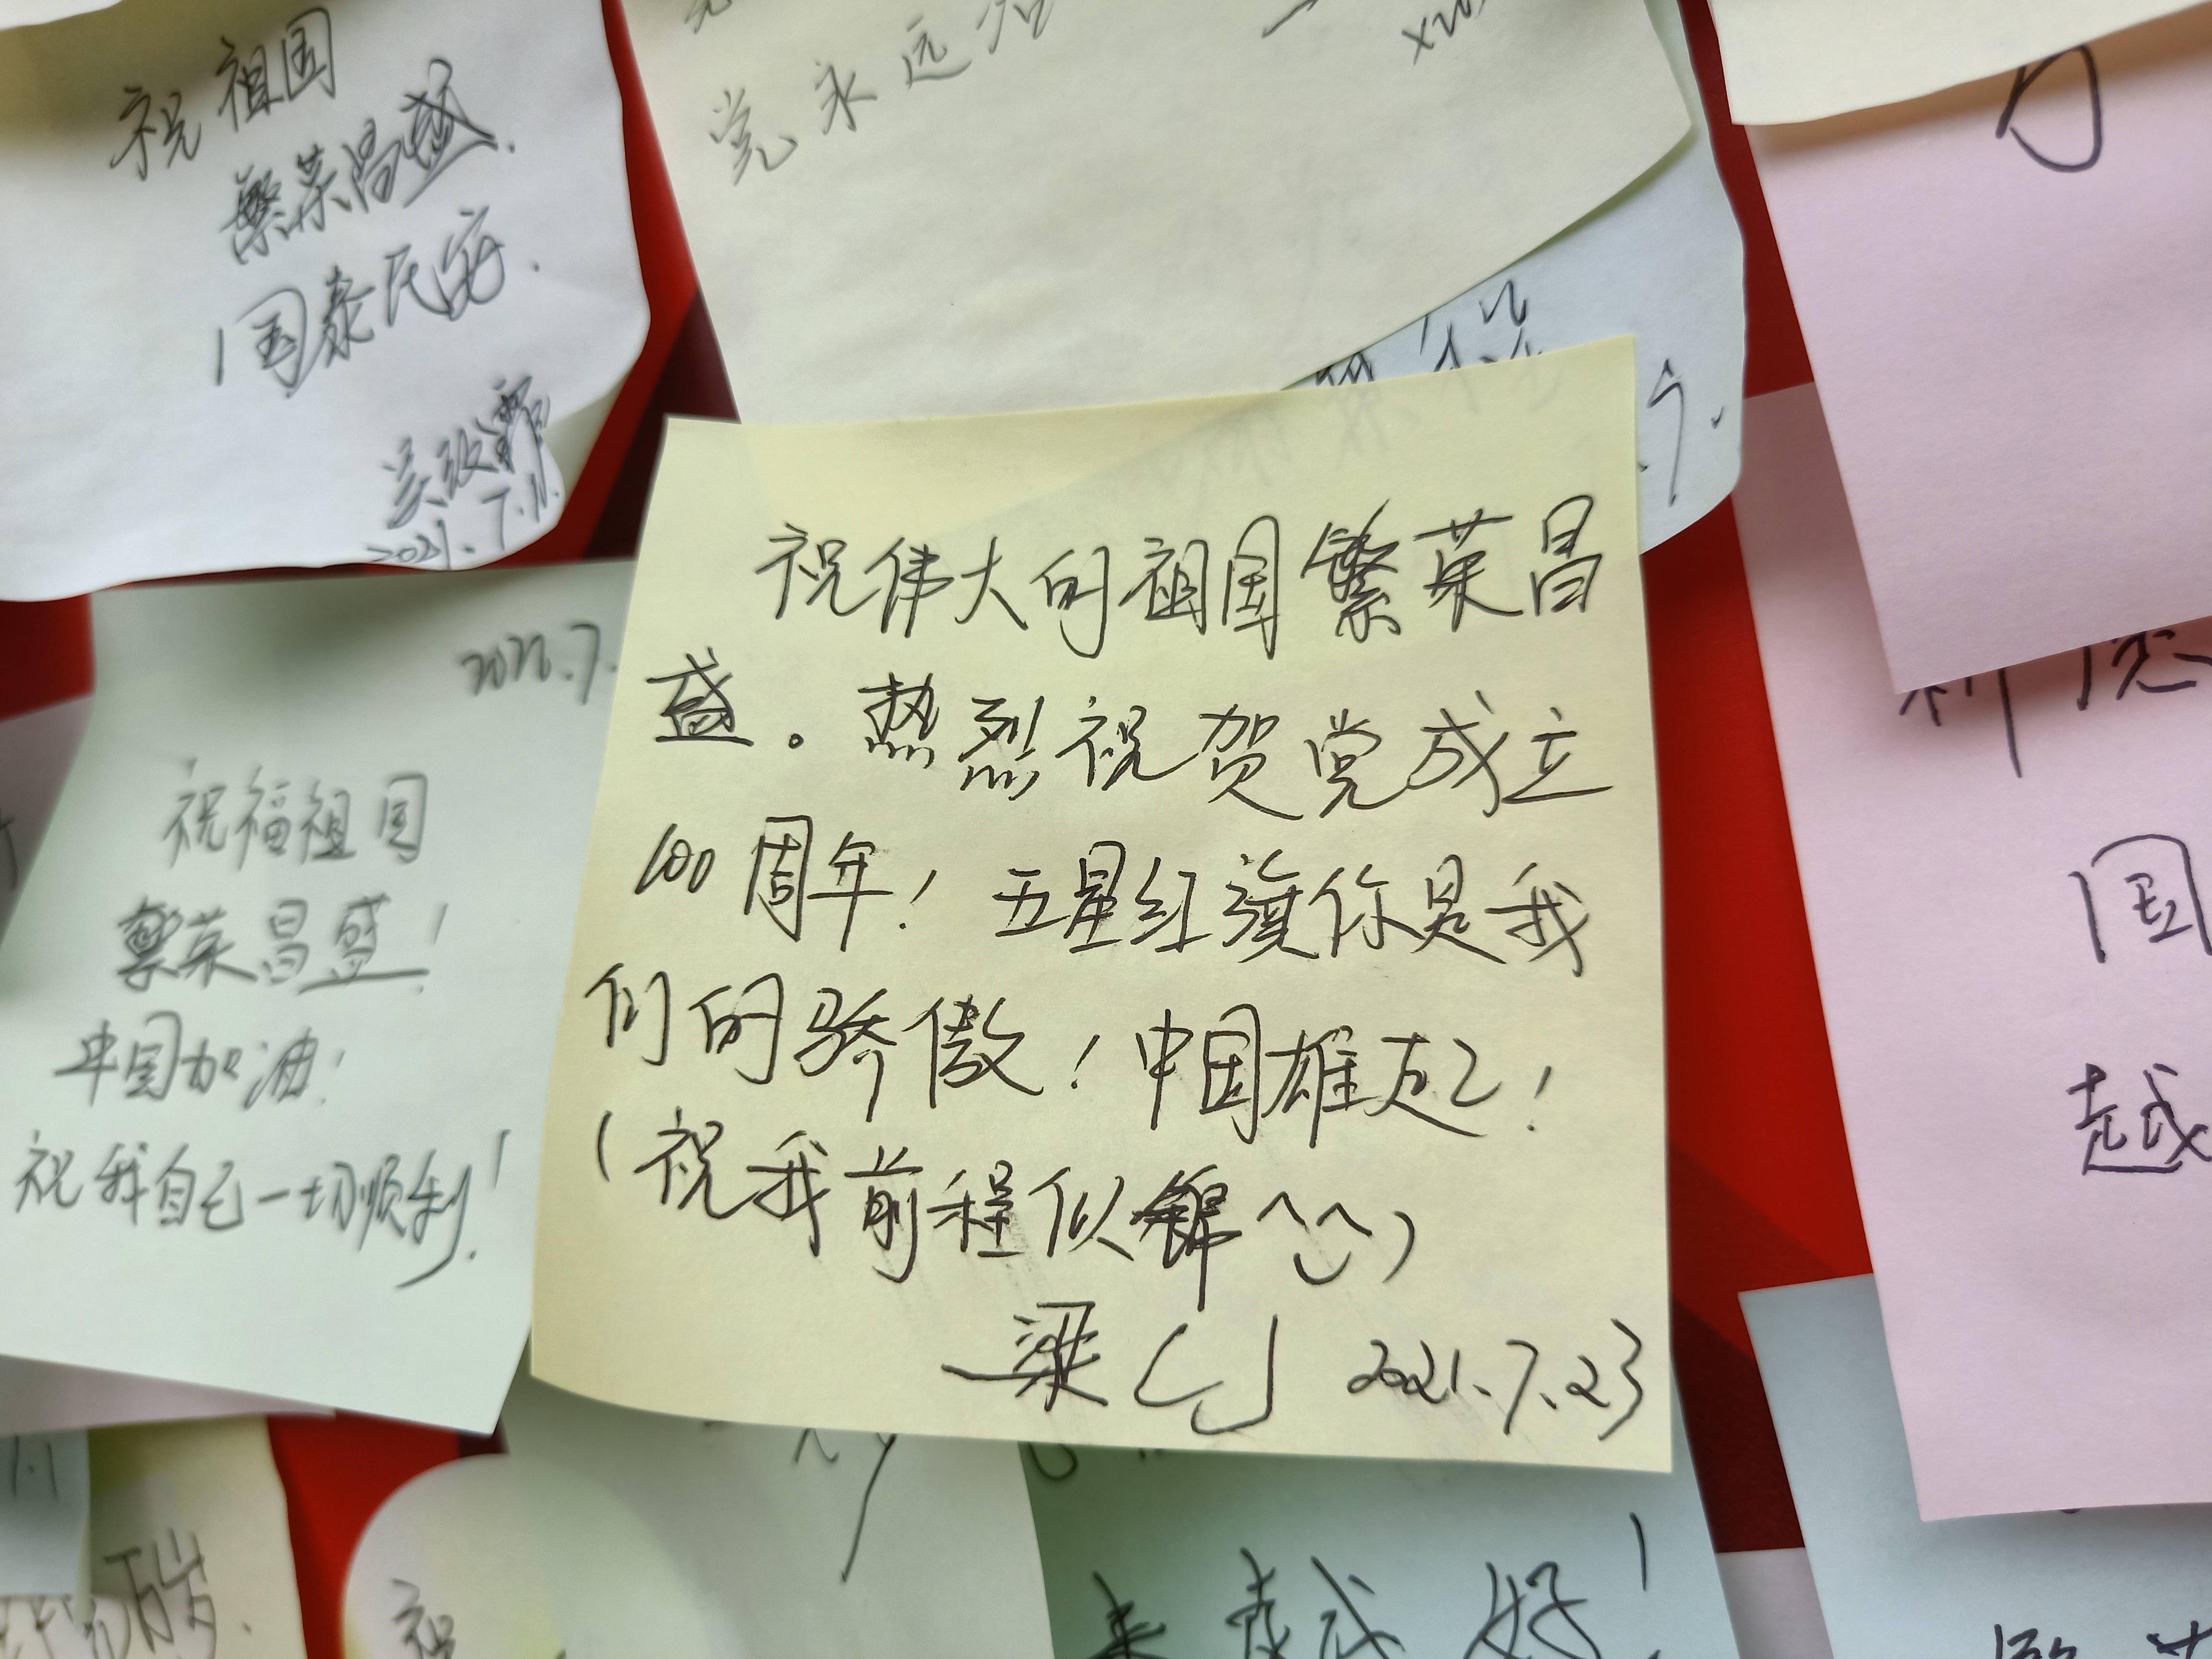 祝祖国
繁荣昌盛.
国泰民安.
2021.7.11.
党永远
祝伟大的祖国繁荣昌
盛。热烈祝贺党成立
100周年!五星红旗你是我
们的骄傲!中国雄起!
(祝我前程似锦^‿^)
梁 2021.7.23
2021.7.
祝福祖国
繁荣昌盛!
中国加油!
祝我自己一切顺利!
国
越
万岁.
祝
来越好!